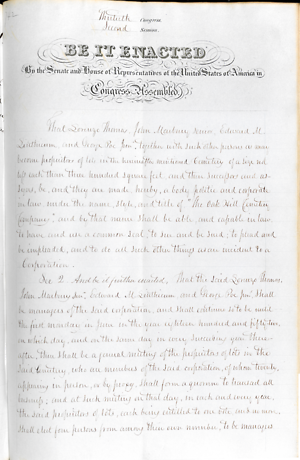 Thirtieth Congress
Second Session
BE IT ENACTED
By the Senate and House of Representatives of the United States of America in
Congress Assembled
That Lorenzo Thomas, John Marbury, senior, Edward M.
Linthicum, and George Poe Jun., together with such other persons as may
become proprietors of lots in the Cemetery of a size not
less than three hundred square feet, and their successors and as-
signs, be, and they are made, hereby, a body politic and corporate
in law under the name, style, and title of "The Oak Hill Cemetery
Company," and by that name shall be able and capable in law
to have, and use a common seal, to sue and be sued, to plead and
be impleaded, and to do all such other things as are incident to a
Corporation.
Sec 2. And be it further enacted, That the said Lorenzo Thomas,
John Marbury Sen., Edward M. Linthicum and George Poe Jun. shall
be managers of the said corporation, and shall continue so to be until
the first monday in June in the year eighteen hundred and fifty,
on which day, and on the same day in every succeeding year there-
after, there shall be a general meeting of the proprietors of lots in the
said Cemetery, who are members of the said corporation, of whom twenty,
appearing in person, or by proxy, shall form a quorum to transact all
business; and at such meeting on that day, in each and every year,
the said proprietors of lots, each being entitled to one vote, and no more,
shall elect four persons from among their own number, to be managers